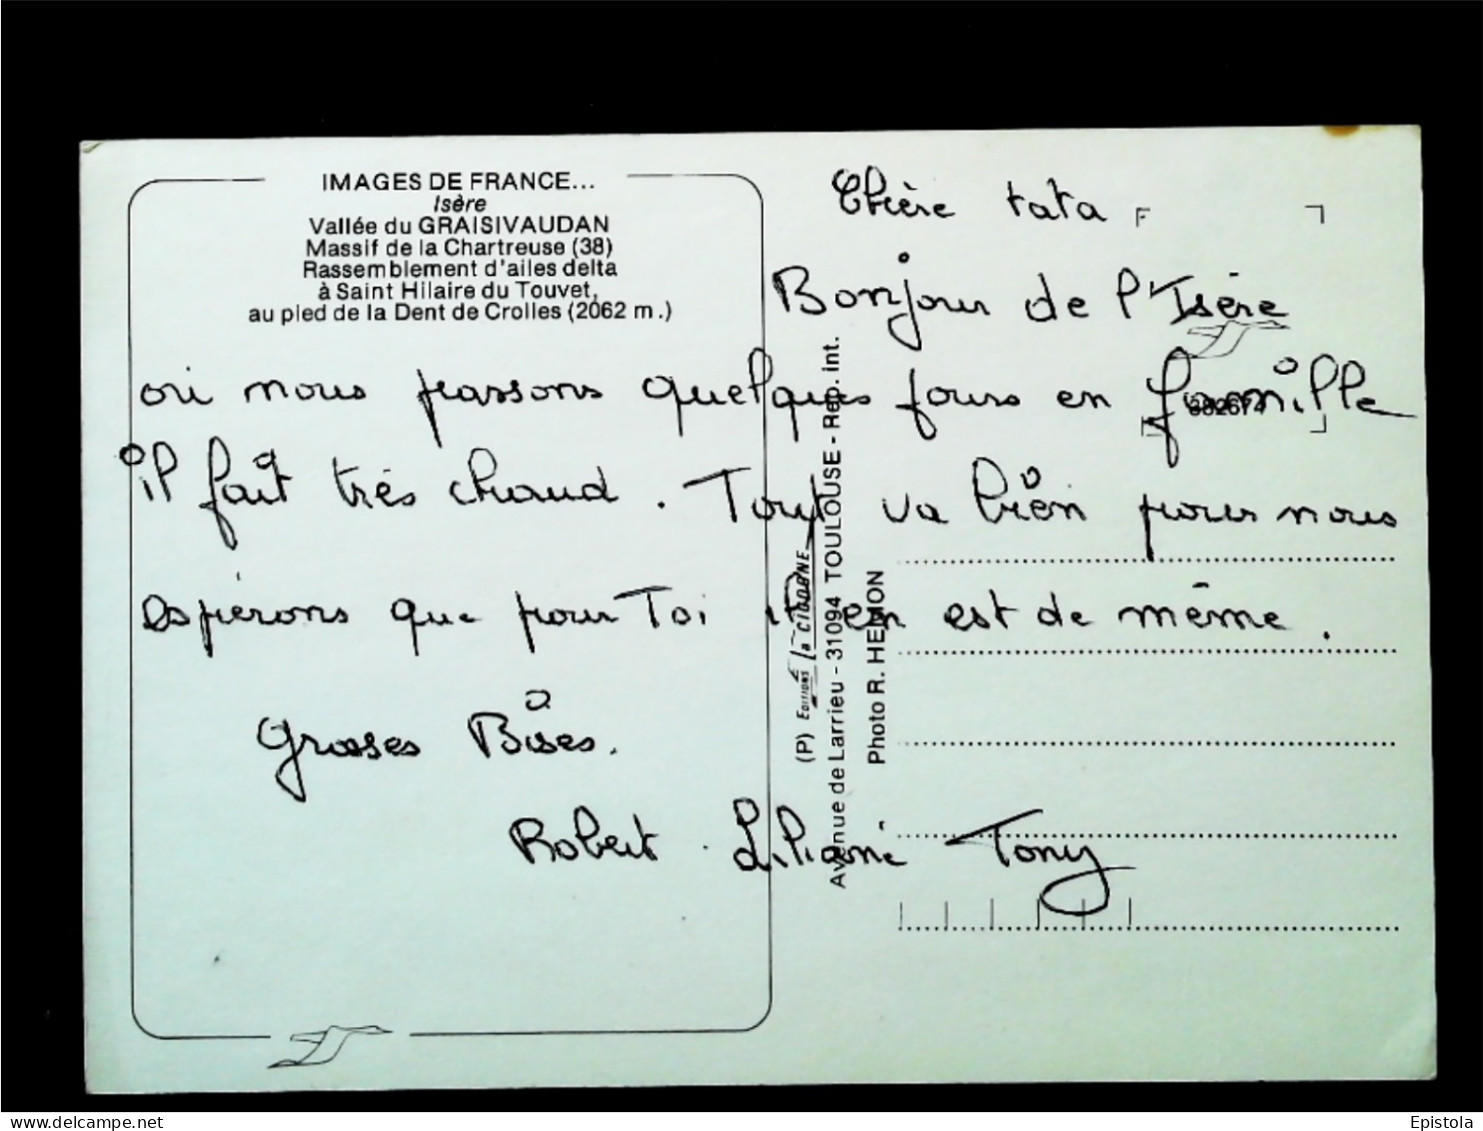 IMAGES DE FRANCE...
Isère
Vallée du GRAISIVAUDAN
Massif de la Chartreuse (38)
Rassemblement d'ailes delta
à Saint Hilaire du Touvet,
au pied de la Dent de Crolles (2062 m.)
Chère tata
Bonjour de l'Isère
où nous passons quelques jours en famille
il fait très chaud. Tout va bien pour nous
espérons que pour Toi il en est de même.
Grosses Bises.
Robert Liliane Tony
(P) EDITIONS la CIGOGNE
Avenue de Larrieu - 31094 TOULOUSE - Rep. int.
Photo R. HEMON
382674
delcampe.net
Epistola